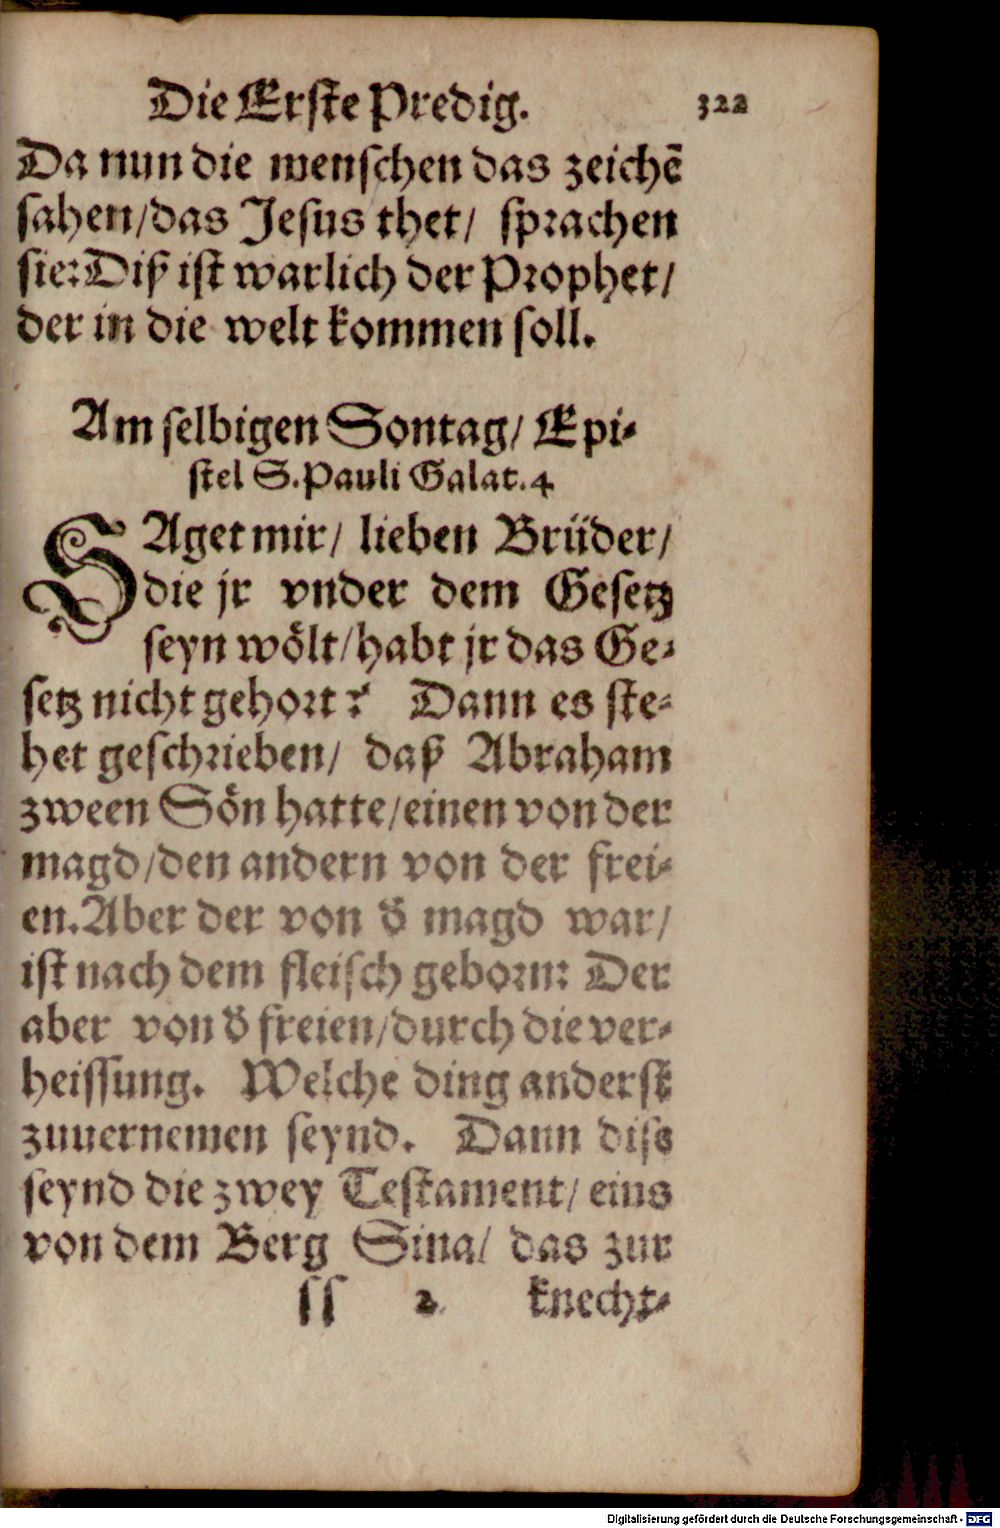 Die Erste Predig. 322
Da nun die menschen das zeichē
sahen/das Jesus thet/ sprachen
sie: Diß ist warlich der Prophet/
der in die welt kommen soll.
Am selbigen Sontag/ Epi-
stel S. Pauli Galat. 4
SAget mir/ lieben Brüder/
die jr vnder dem Gesetz
seyn wölt/habt jr das Ge-
setz nicht gehort? Dann es ste-
het geschrieben/ daß Abraham
zween Sön hatte/einen von der
magd/den andern von der frei-
en. Aber der von d̕ magd war/
ist nach dem fleisch geborn: Der
aber von d̕ freien/durch die ver-
heissung. Welche ding anderst
zuuernemen seynd. Dann dise
seynd die zwey Testament/ eins
von dem Berg Sina/ das zur
ss 2 knecht-
Digitalisierung gefördert durch die Deutsche Forschungsgemeinschaft - DFG